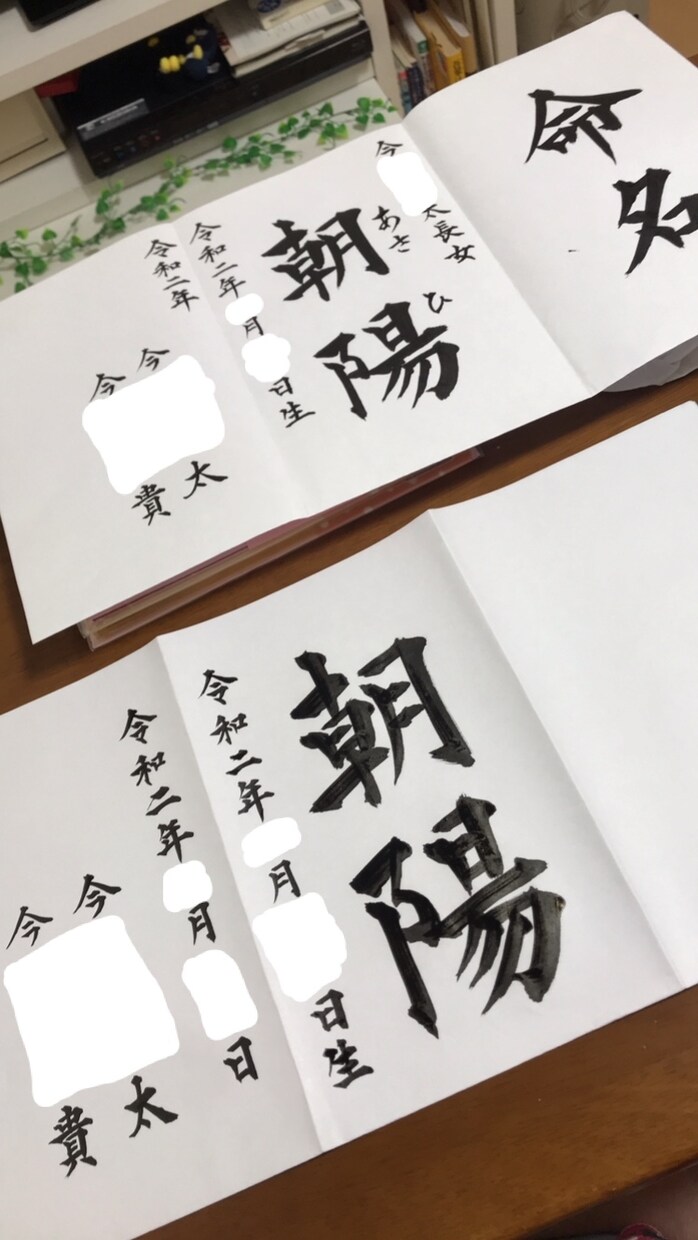 命名
今 太長女
あさひ
朝陽
令和二年 月 日生
令和二年
今 太
今 貴
朝陽
令和二年 月 日生
令和二年 月 日
今 太
今 貴